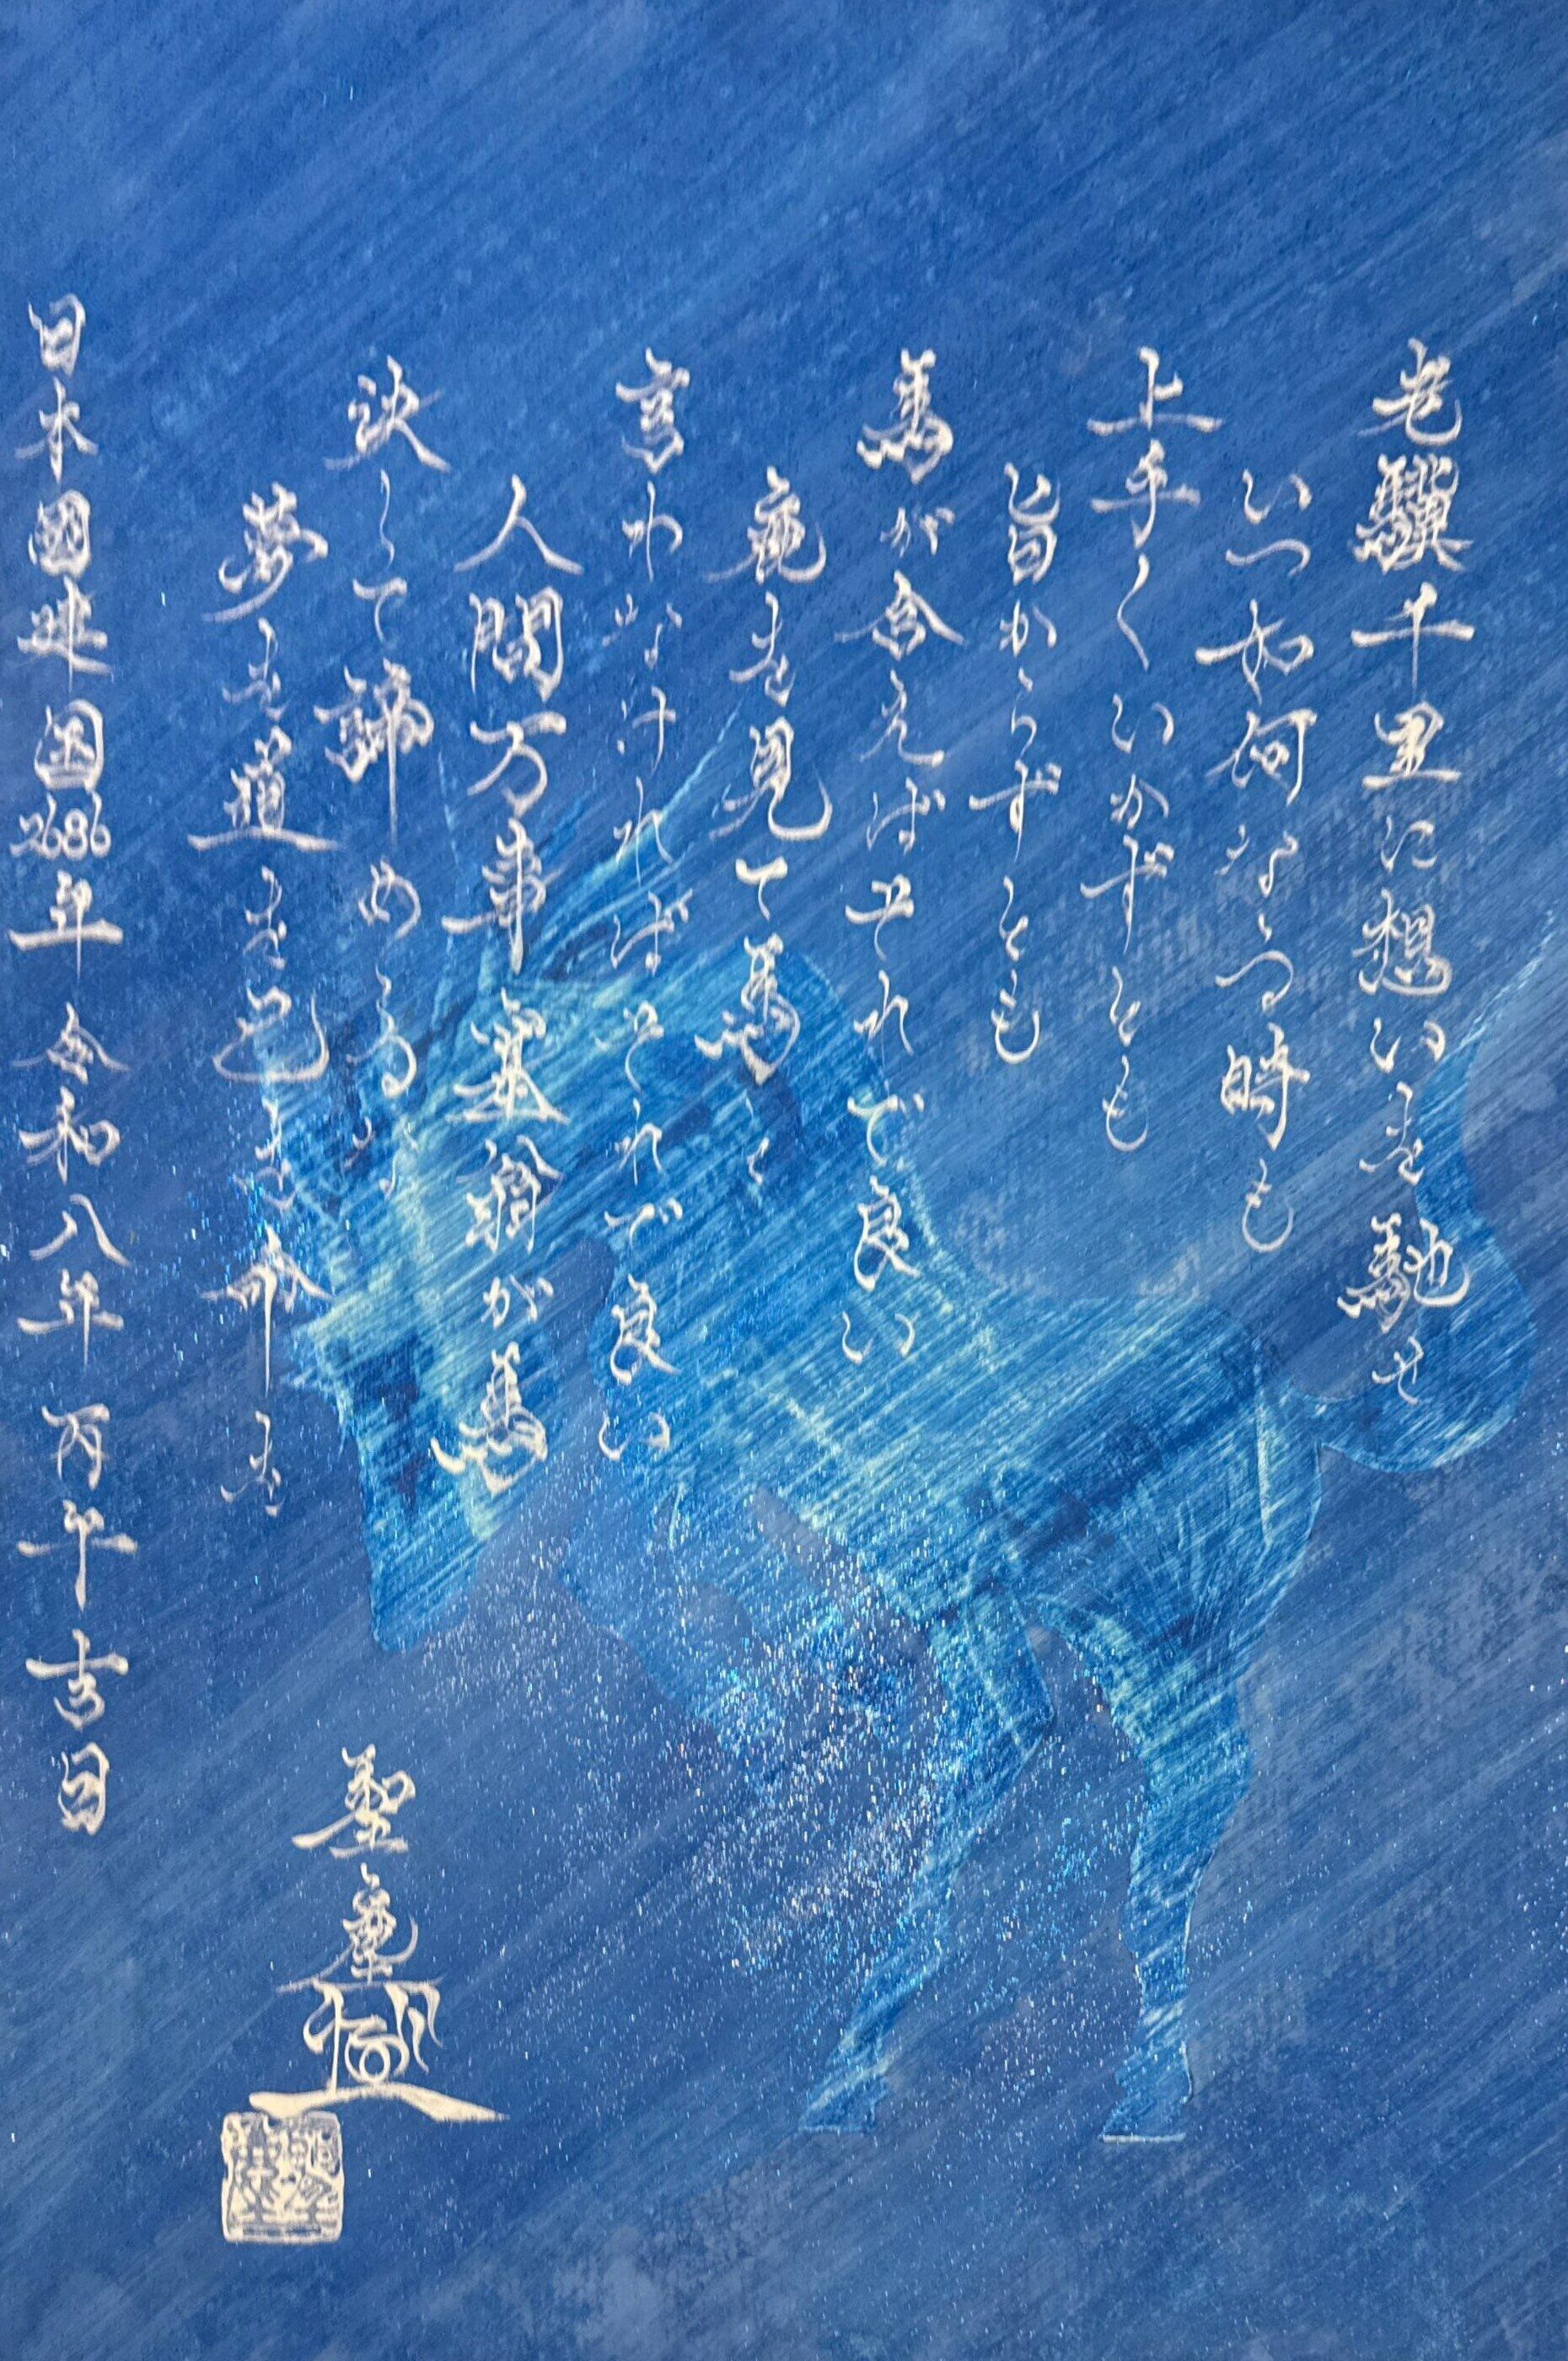 老驥千里に想いを馳せ
いつ如何なる時も
上手くいかずとも
旨からずとも
馬が合えばそれで良い
鹿を見て馬と
言わなければそれで良い
人間万事塞翁が馬
決して諦めるな
夢を道づれ
日本國建国2686年 令和八年 丙午 吉日
聖